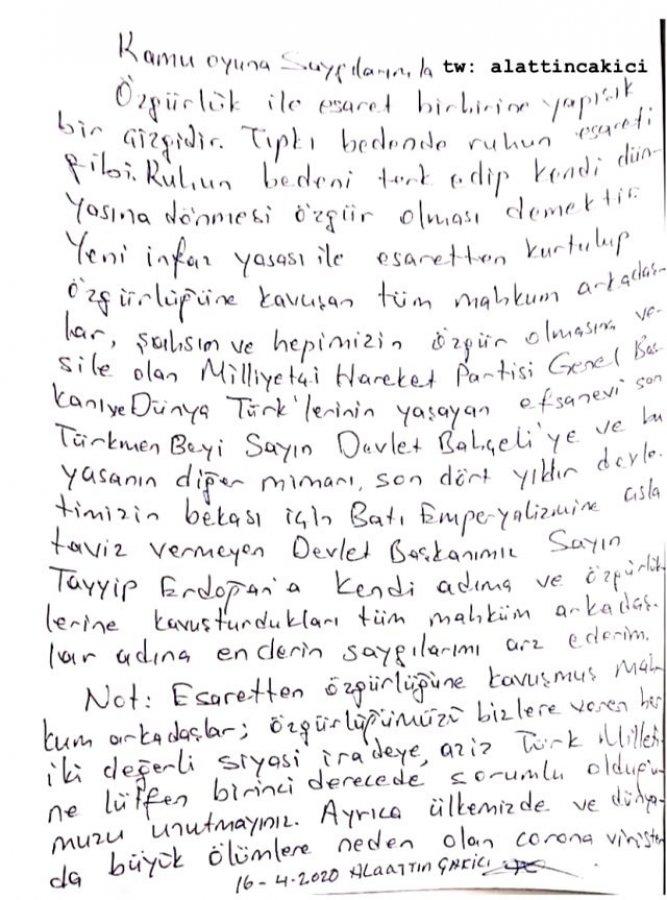 Kamu oyuna Saygılarımla tw: alattincakici
Özgürlük ile esaret birbirine yapışık
bir çizgidir. Tıpkı bedende ruhun esareti
gibi. Ruhun bedeni terk edip kendi dün-
yasına dönmesi özgür olması demektir.
Yeni infaz yasası ile esaretten kurtulup
özgürlüğüne kavuşan tüm mahkum arkadaş-
lar, şahsım ve hepimizin özgür olmasına ve-
sile olan Milliyetçi Hareket Partisi Genel Baş-
kanı ve Dünya Türk'lerinin yaşayan efsanevi son
Türkmen Beyi Sayın Devlet Bahçeli'ye ve bu
yasanın diğer mimarı, son dört yıldır devle-
timizin bekası için Batı Emperyalizmine asla
taviz vermeyen Devlet Başkanımız Sayın
Tayyip Erdoğan'a kendi adıma ve özgürlük-
lerine kavuşturdukları tüm mahküm arkadaş-
lar adına en derin saygılarımı arz ederim.
Not: Esaretten özgürlüğüne kavuşmuş mah-
kum arkadaşlar; özgürlüğümüzü bizlere veren her
iki değerli siyasi iradeye, aziz Türk Milleti-
ne lütfen birinci derecede sorumlu olduğu-
muzu unutmayınız. Ayrıca ülkemizde ve dünya-
da büyük ölümlere neden olan corona
16-4.2020 ALAATTİN ÇAKICI